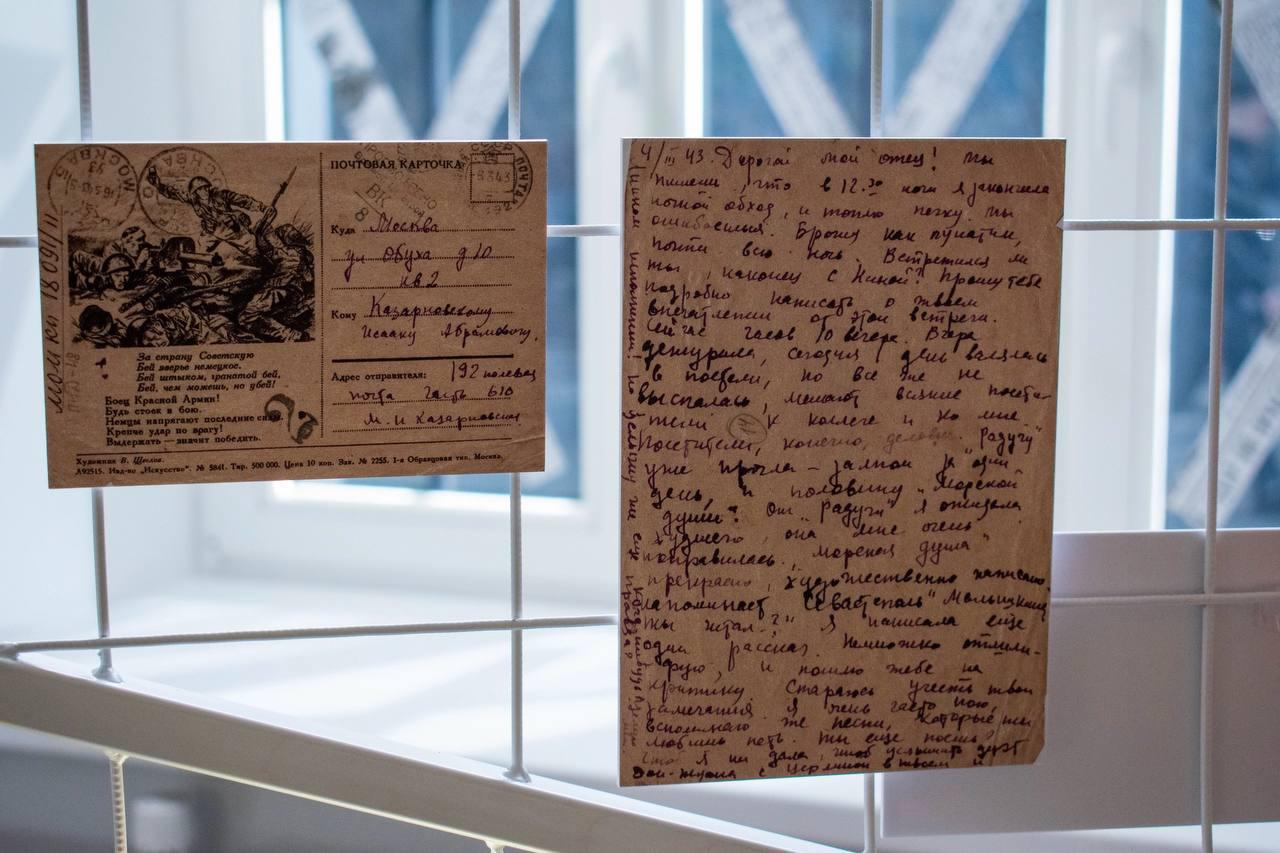 ПОЧТОВАЯ КАРТОЧКА
Куда Москва
ул Обуха д 10
кв 2
Кому Казарновскому
Исааку Абрамовичу.
Адрес отправителя: 192 полевая
почта часть 610
М. И Казарновская
За страну Советскую
Бей зверье немецкое.
Бей штыком, гранатой бей,
Бей, чем можешь, но убей!
Боец Красной Армии!
Будь стоек в бою.
Немцы напрягают последние силы
Крепче удар по врагу!
Выдержать — значит победить.
Художник В. Щеглов.
А92515. Изд-во „Искусство". № 5841. Тир. 500 000. Цена 10 коп. Зак. № 2255. 1-я Образцовая тип. Москва.
МОСКВА
ПОЧТА
4/III 43. Дорогой мой отец! Ты
пишешь, что в 12.30 ночи я закончила
ночной обход, и топлю печку. Ты
ошибаешься. Брожу как лунатик,
почти всю ночь. Встретился ли
ты, наконец с Ниной? Прошу тебя
подробно написать о твоем
впечатлении от этой встречи.
Сейчас часов 10 вечера. Вчера
дежурила, сегодня день валялась
в постели, но все же не
выспалась, мешают всякие посети-
тели к коллеге и ко мне.
Посетители, конечно, деловые. „Радугу"
уже прочла — залпом за один
день, и половину „Морской
души". От „Радуги" я ожидала
худшего, она мне очень
понравилась. „Морская душа"
прекрасно, художественно написано
напоминает „Севастополь"
Ты читал?" Я написала еще
один рассказ. Немножко отшлифую, и пошлю тебе на
критику. Стараюсь учесть твои
замечания. Я очень часто пою,
вспоминаю же песни, которые ты
любишь петь. Ты еще поешь?
Что я ни дала, чтоб услышать дуэт
Дон-Жуана с Церлиной в твоем и